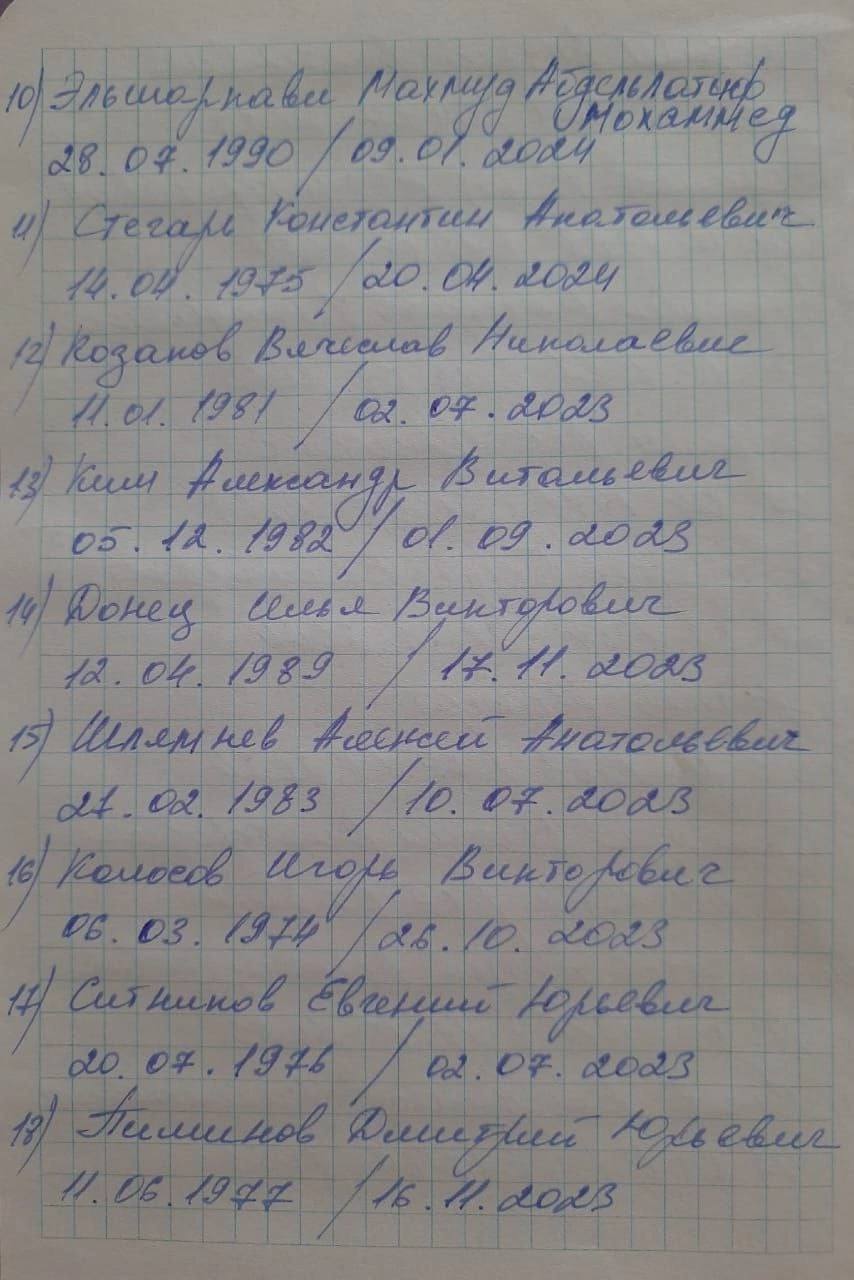 10) Эльшаркави Махмуд Абдельлатиф
Мохаммед
28.07.1990 / 09.01.2024
11) Стегарь Константин Анатольевич
14.04.1975 / 20.04.2024
12) Козаков Вячеслав Николаевич
11.01.1981 / 02.07.2023
13) Ким Александр Витальевич
05.12.1982 / 01.09.2023
14) Донец Илья Викторович
12.04.1989 / 17.11.2023
15) Шлямнев Алексей Анатольевич
27.02.1983 / 10.07.2023
16) Колосов Игорь Викторович
06.03.1974 / 26.10.2023
17) Ситников Евгений Юрьевич
20.07.1976 / 02.07.2023
18) Пиминов Дмитрий Юрьевич
11.06.1977 / 16.11.2023